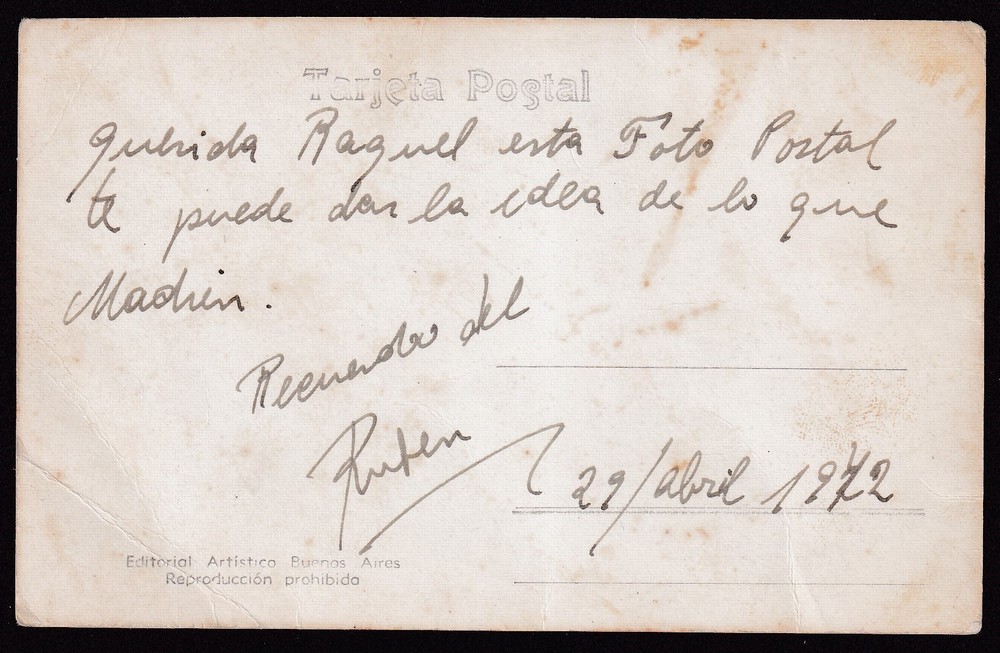 Tarjeta Postal
Querida Raquel esta Foto Postal
te puede dar la idea de lo que
Madrin.
Recuerdo del
Ruben
29/abril 1972
Editorial Artístico Buenos Aires
Reproducción prohibida